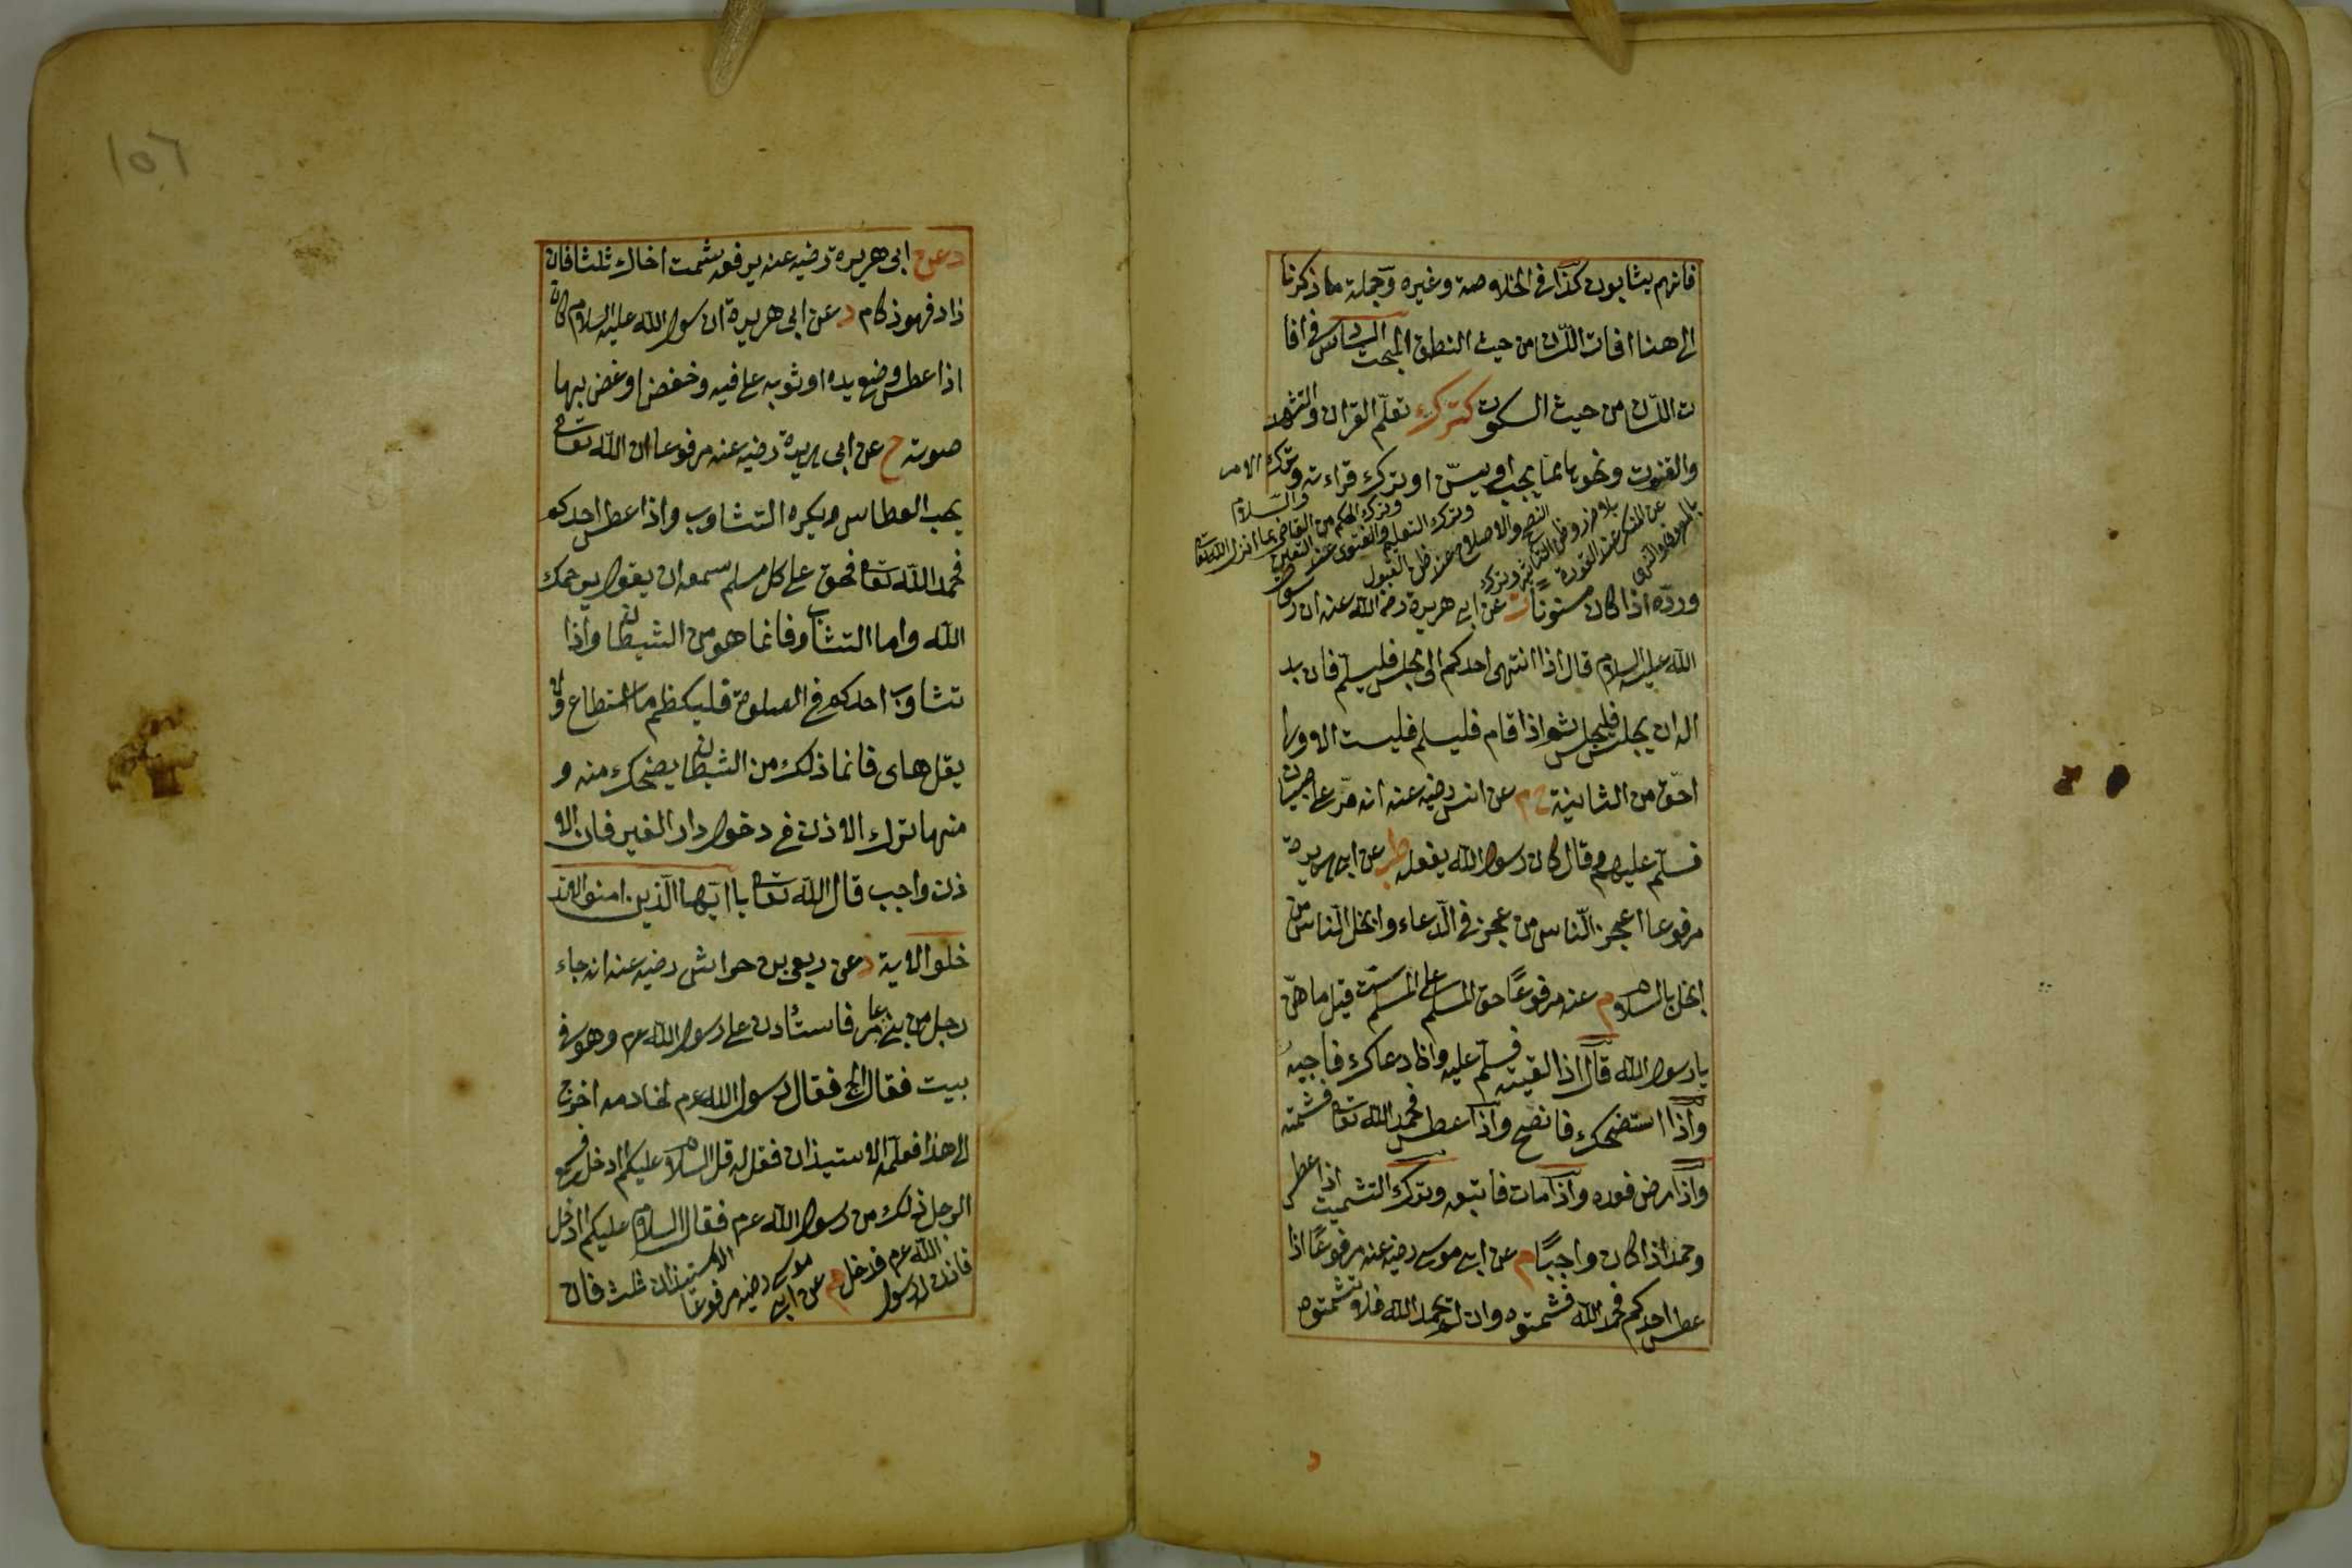 فانهم يثابون كذا في الخلاصة وغيره وجملة ما ذكرنا
الى هنا افات اللسان من حيث النطق المبحث السادس في افا
ت اللسان من حيث السكوت كترك تعلم القران والتشهد
والقنوت ونحوها مما يجب او يسن او ترك قراءته وترك الامر
بالمعروف والنهى
عن المنكر عند القدرة
بلا ضرر وظن التأثير وترك
النصح والاصلاح عند ظن القبول
وترك التعليم والفتوى عند التعين
وترك الحكم من القاضى بما انزل الله تعا
والسلام
ورده اذا كان مسنونا ت عن ابى هريرة رضى الله عنه ان رسول
الله عليه السلام قال اذا انتهى احدكم الى مجلس فليسلم فان بد
اله ان يجلس فليجلس ثم اذا قام فليسلم فليست الاولى
احق من الثانية خ م عن انس رضيه عنه انه مر على صبيان
فسلم عليهم وقال كان رسول الله يفعله طب عن ابى هريرة
مرفوعا اعجز الناس من عجز في الدعاء وابخل الناس من
بخل بالسلام م عنه مرفوعا حق المسلم على المسلم ست قيل ما هن
يا رسول الله قال اذا لقيته فسلم عليه واذا دعاك فاجبه
واذا استنصحك فانصح واذا عطس فحمد الله تعا فشمته
واذا مرض فعده واذا مات فاتبعه وترك التشميت اذا عطس
وحمد اذا كان واجبا م عن ابى موسى رضيه عنه مرفوعا اذا
عطس احدكم فحمد الله فشمتوه وان لم يحمد الله فلا تشمتوه
د
١٥٦
د عن ابى هريرة رضيه عنه يرفعه شمت اخاك ثلثا فان
زاد فهو زكام د عن ابى هريرة ان رسول الله عليه السلام كان
اذا عطس وضع يده او ثوبه على فيه وخفض او غض بها
صوته خ عن ابى هريرة رضيه عنه مرفوعا ان الله تعا
يحب العطاس ويكره التثاوب واذا عطس احدكم
فحمد الله تعا فحق على كل مسلم سمعه ان يقول يرحمك
الله واما التثاوب فانما هو من الشيطان واذا
تثاوب احدكم في الصلوة فليكظم ما استطاع ولا
يقل هاى فانما ذلك من الشيطان يضحك منه و
منها ترك الاذن في دخول دار الغير فان الا
ذن واجب قال الله تعا يا ايها الذين امنوا لا تد
خلوا الاية د عن ربعى بن حراش رضيه عنه انه جاء
رجل من بنى عامر فاستأذن على رسول الله عم وهو في
بيت فقال االج فقال رسول الله عم لخادمه اخرج
الى هذا فعلمه الاستيذان فقل له قل السلام عليكم ادخل فسمع
الرجل ذلك من رسول الله عم فقال السلام عليكم اادخل
فاذن له رسول الله عم فدخل خ م عن ابى موسى رضيه مرفوعا الاستيذان ثلث فان